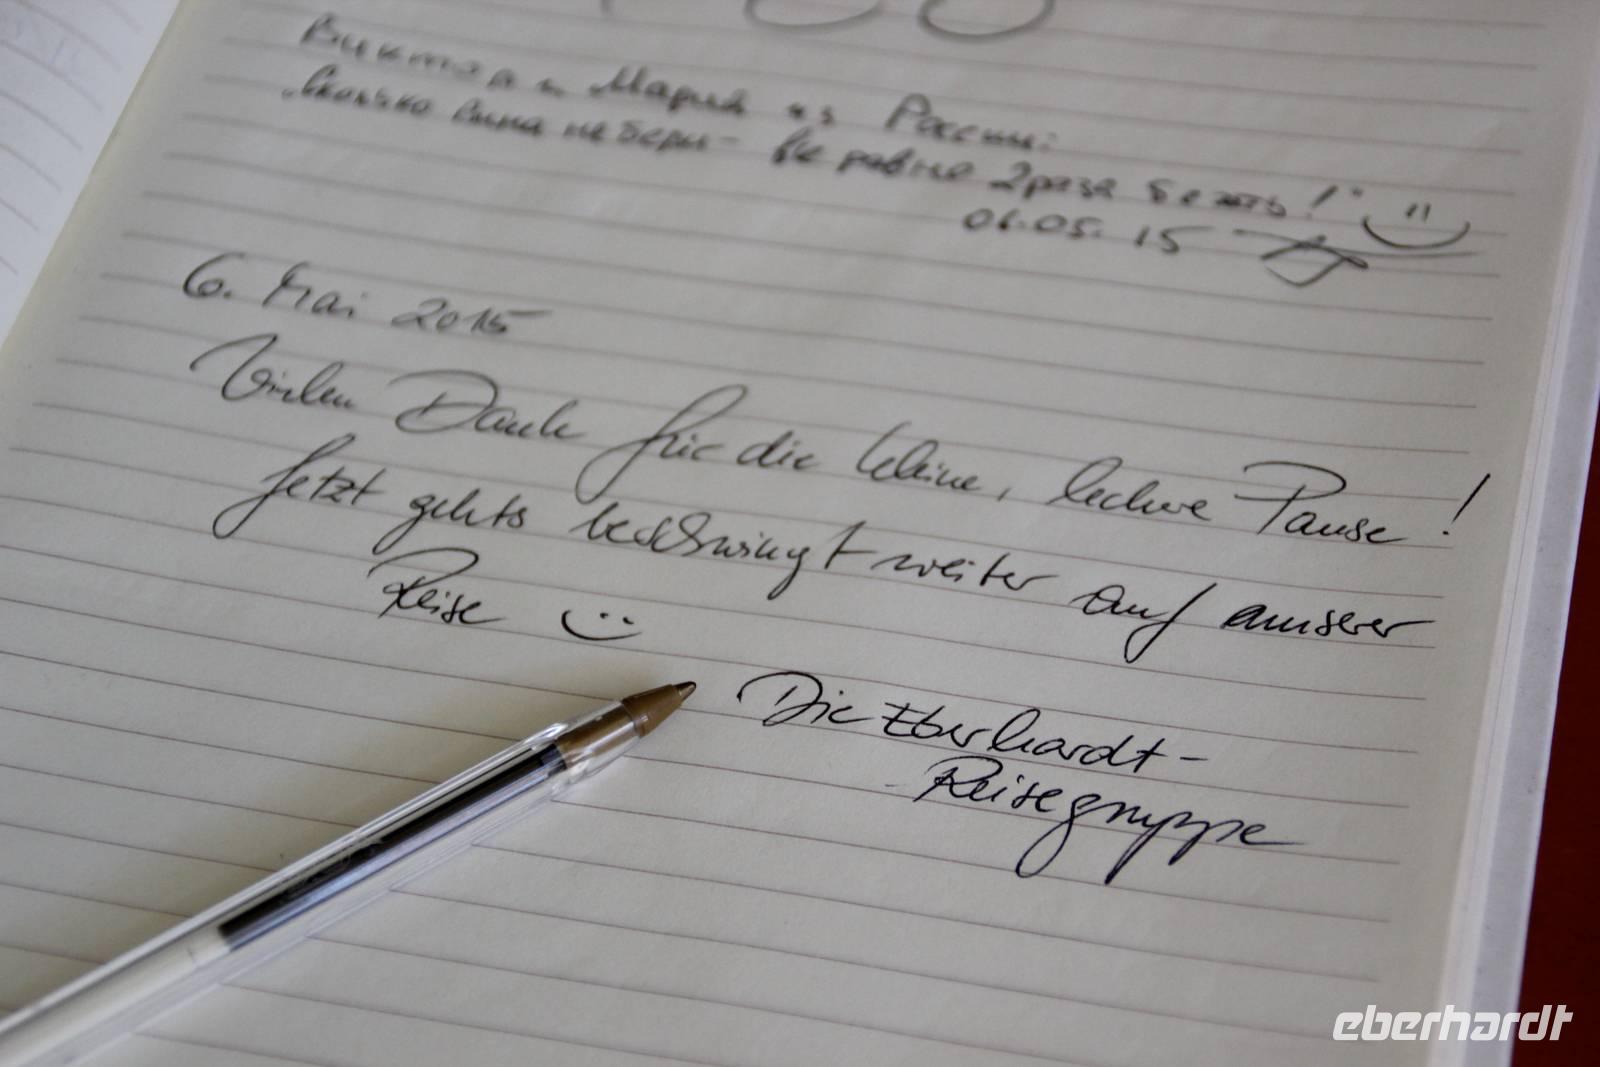 Виктор и Мария из России:
"Сколько вина не бери - всё равно 2 раза бежать!"
06.05.15
6. Mai 2015
Vielen Dank für die kleine, leckere Pause!
Jetzt gehts beschwingt weiter auf unserer
Reise
Die Eberhardt-
-Reisegruppe
eberhardt